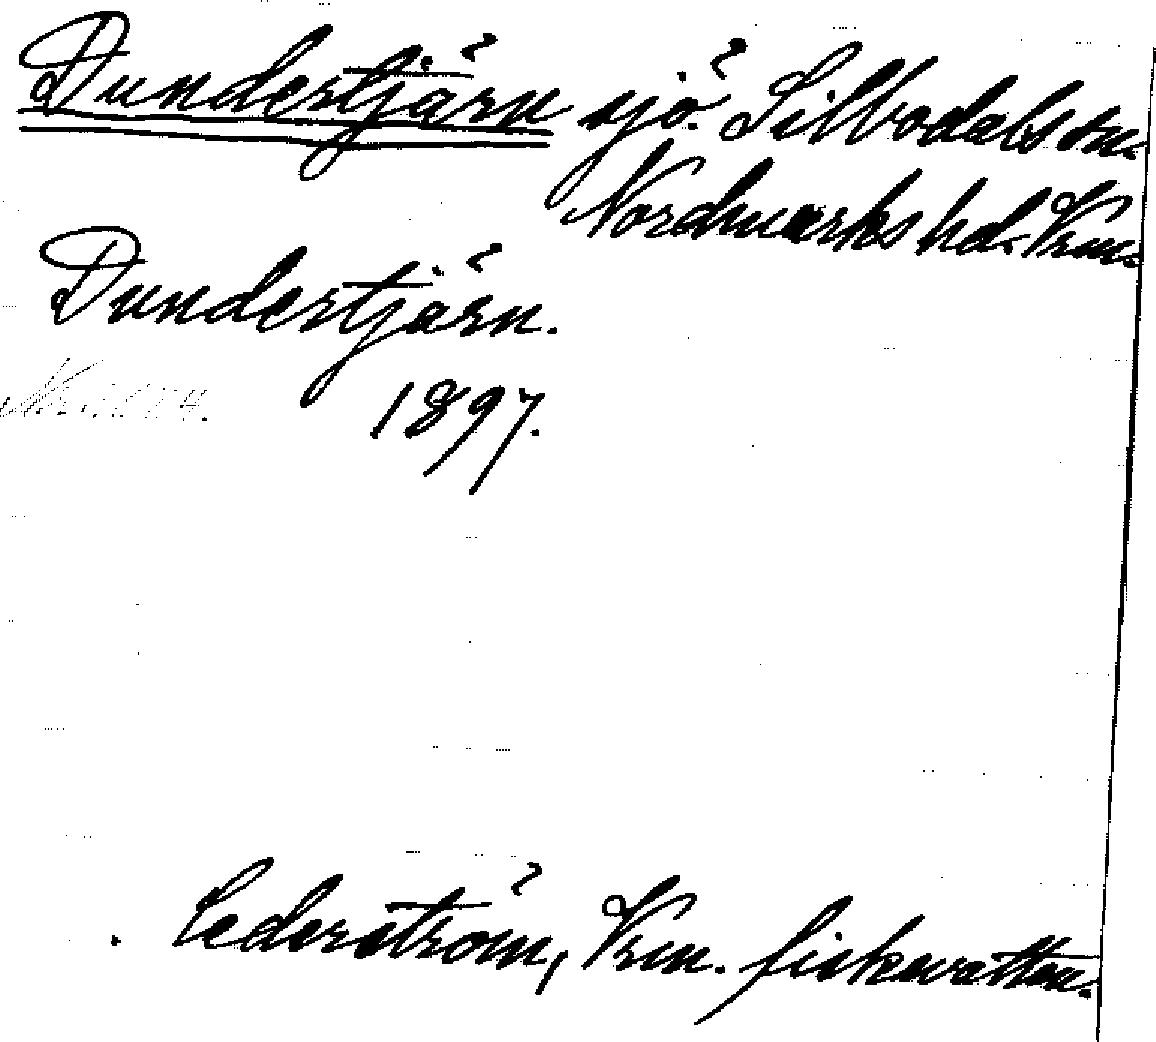 Dundertjärn sjö. Silbodals sn.
Nordmarks hd. Vrm.
Dundertjärn.
1897.
Cederström, Vrm. fiskevatten.